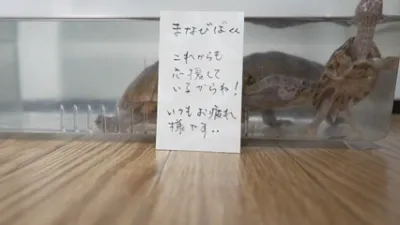 まなびばぁ
これからも
応援して
いるからね!
いつもお疲れ
様です..